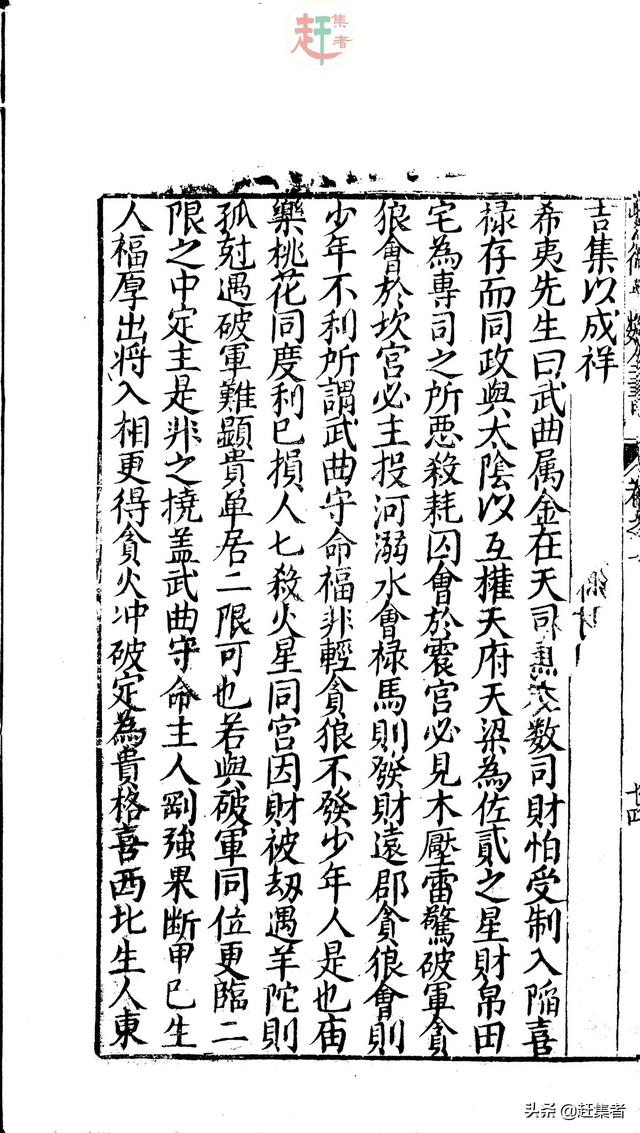 赶集者
吉集以成祥
希夷先生曰武曲属金在天司 数司財怕受制入陥喜
禄存而同政與太陰以互權天府天梁為佐貳之星財帛田
宅為專司之所惡殺耗囚會於震官必見木壓雷驚破軍貪
狼會於坎宮必主投河溺水會禄馬則發財遠郡貪狼會則
少年不利所謂武曲守命福非輕貪狼不發少年人是也庙
樂桃花同度利己損人七殺火星同宮因財被劫遇羊陀則
孤尅遇破軍難顯貴单居二限可也若與破軍同位更臨二
限之中定主是非之撓盖武曲守命主人剛強果断甲己生
人福厚出將入相更得貪火冲破定為貴格喜西北生人東
头条 @赶集者